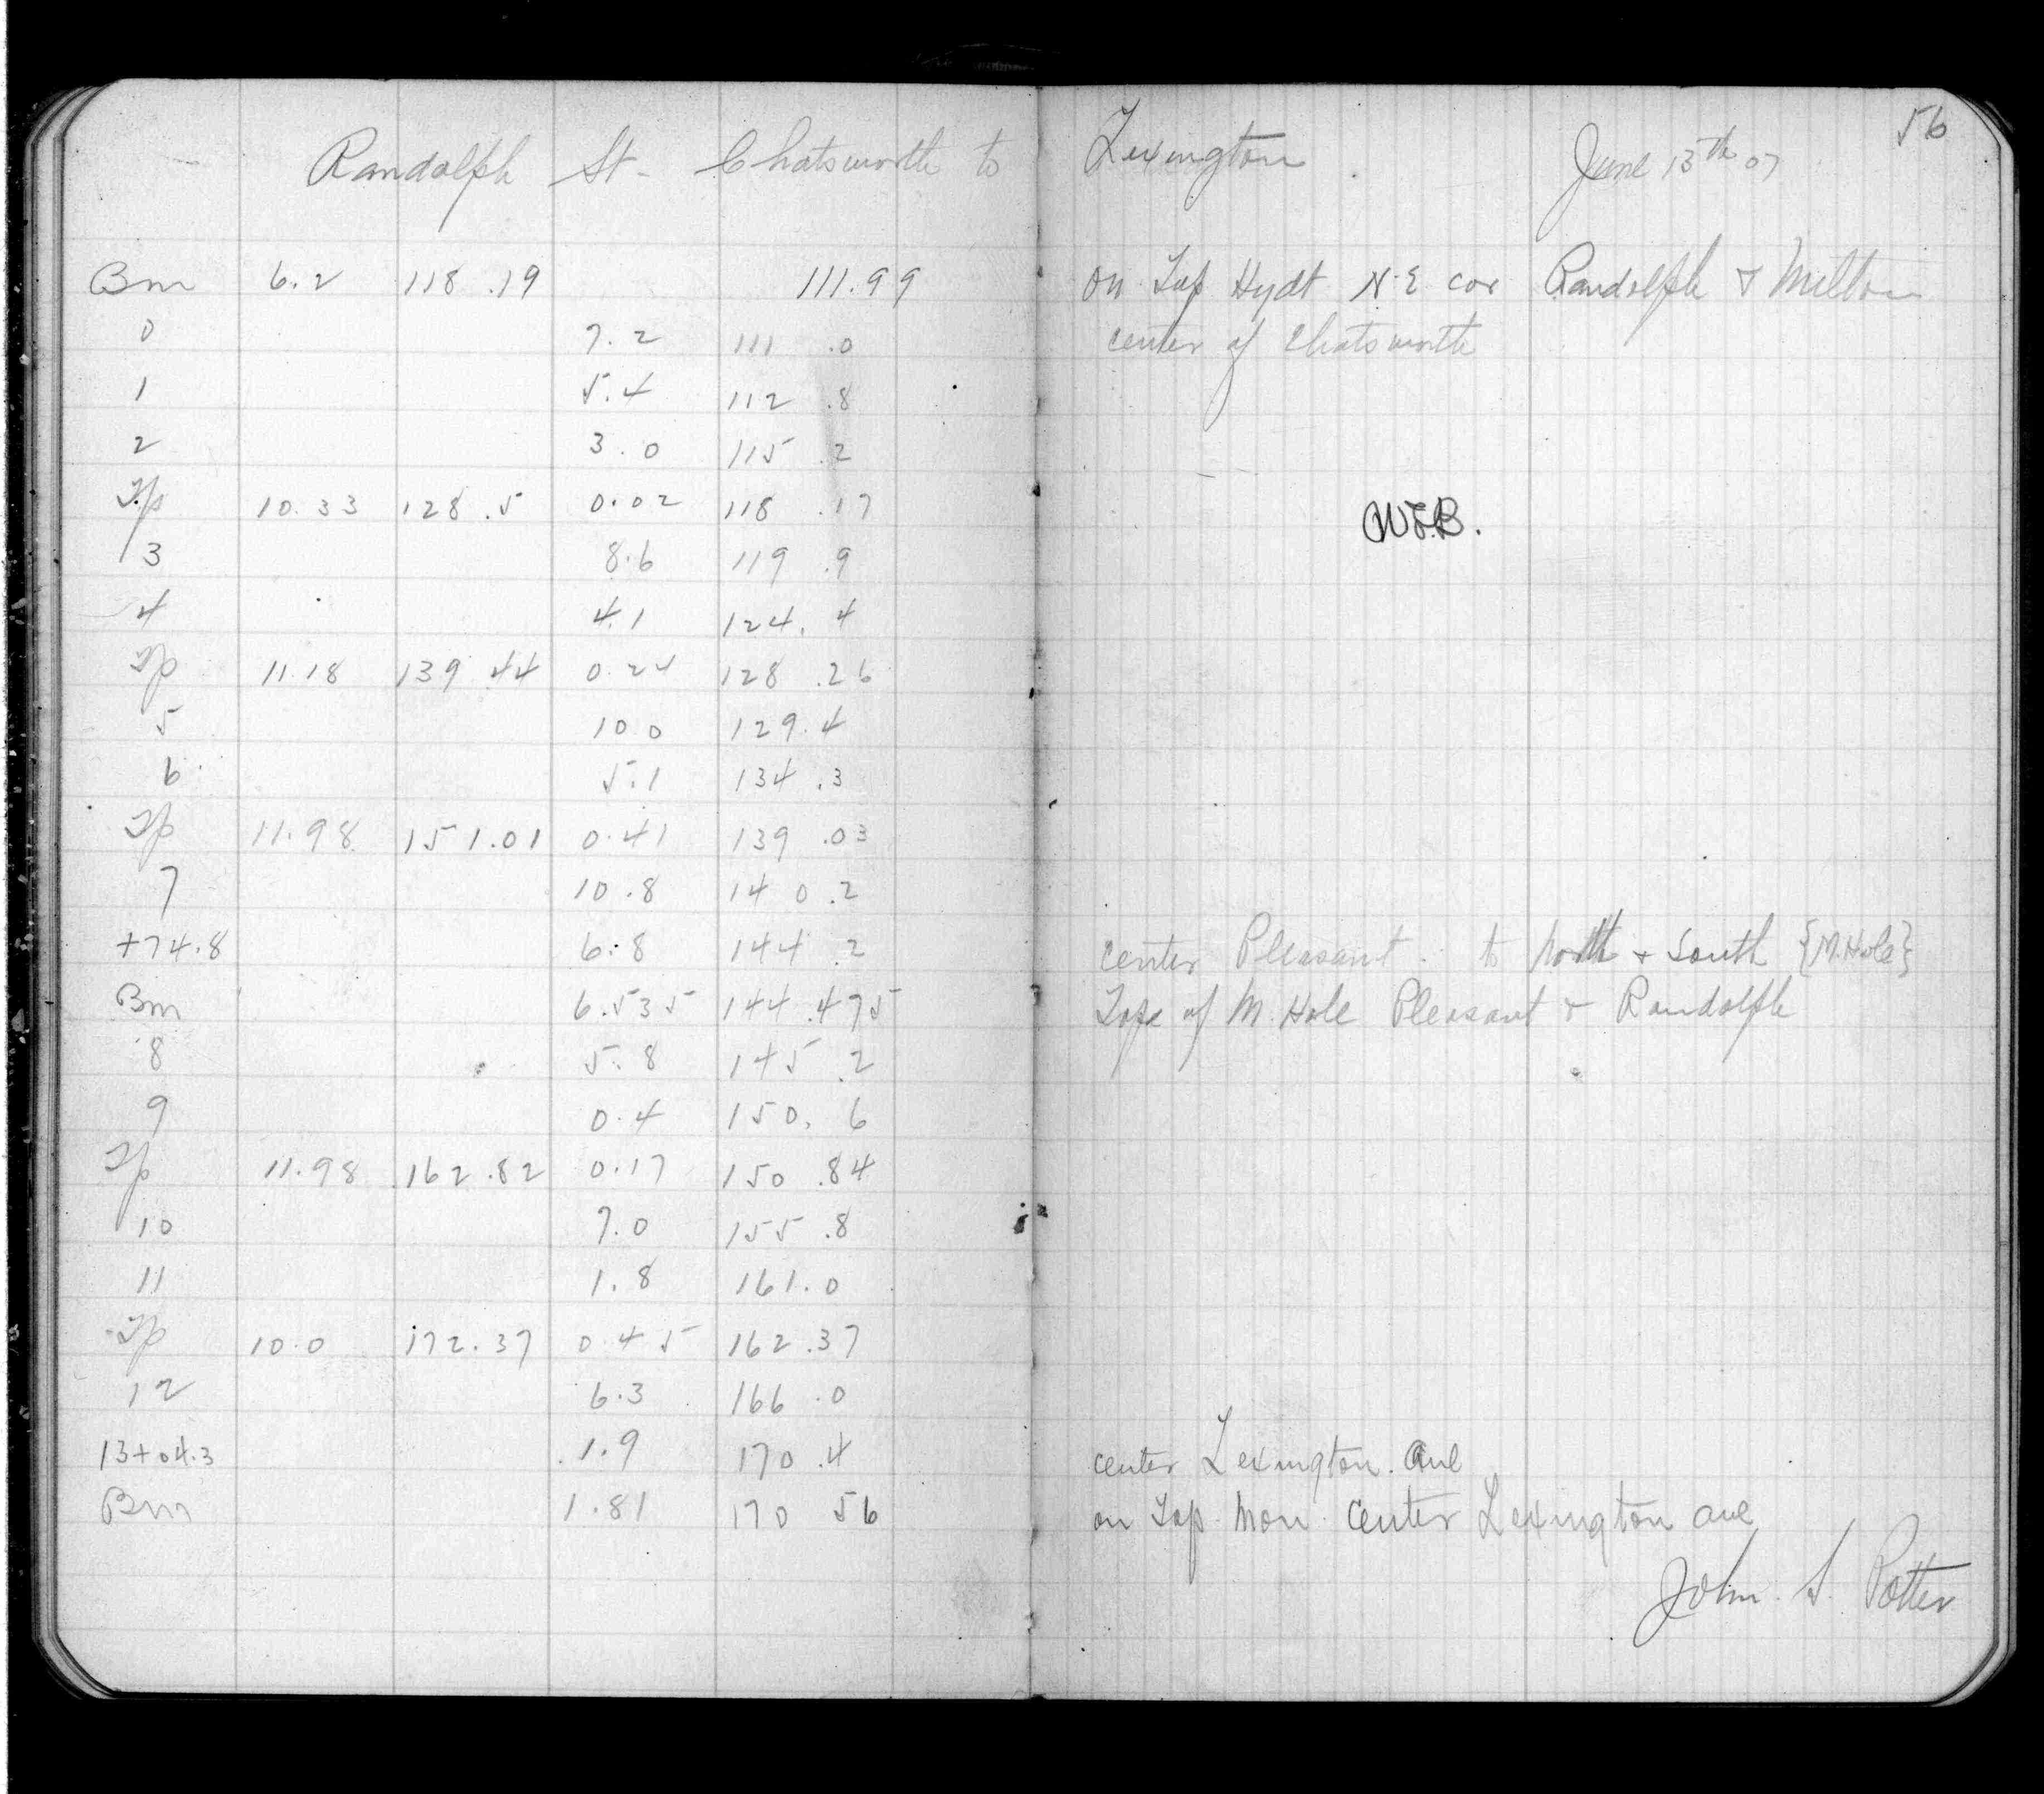 56
Randolph St - Chatsworth to Lexington June 13th 07
Bm 6.2 118.19 111.99 on Top Hydt N.E cor Randolph & Milton
0 7.2 111.0 center of Chatsworth
1 5.4 112.8
2 3.0 115.2
Tp 10.33 128.5 0.02 118.17 W.E.B.
3 8.6 119.9
4 4.1 124.4
Tp 11.18 139.44 0.24 128.26
5 10.0 129.4
6 5.1 134.3
Tp 11.98 151.01 0.41 139.03
7 10.8 140.2
+74.8 6.8 144.2 center Pleasant. to North & South {M.Hole}
Bm 6.535 144.475 Top of M. Hole Pleasant & Randolph
8 5.8 145.2
9 0.4 150.6
Tp 11.98 162.82 0.17 150.84
10 7.0 155.8
11 1.8 161.0
Tp 10.0 172.37 0.45 162.37
12 6.3 166.0
13+04.3 1.9 170.4 center Lexington. Ave
Bm 1.81 170 56 on Top Mon. center Lexington ave
John. S. Potter